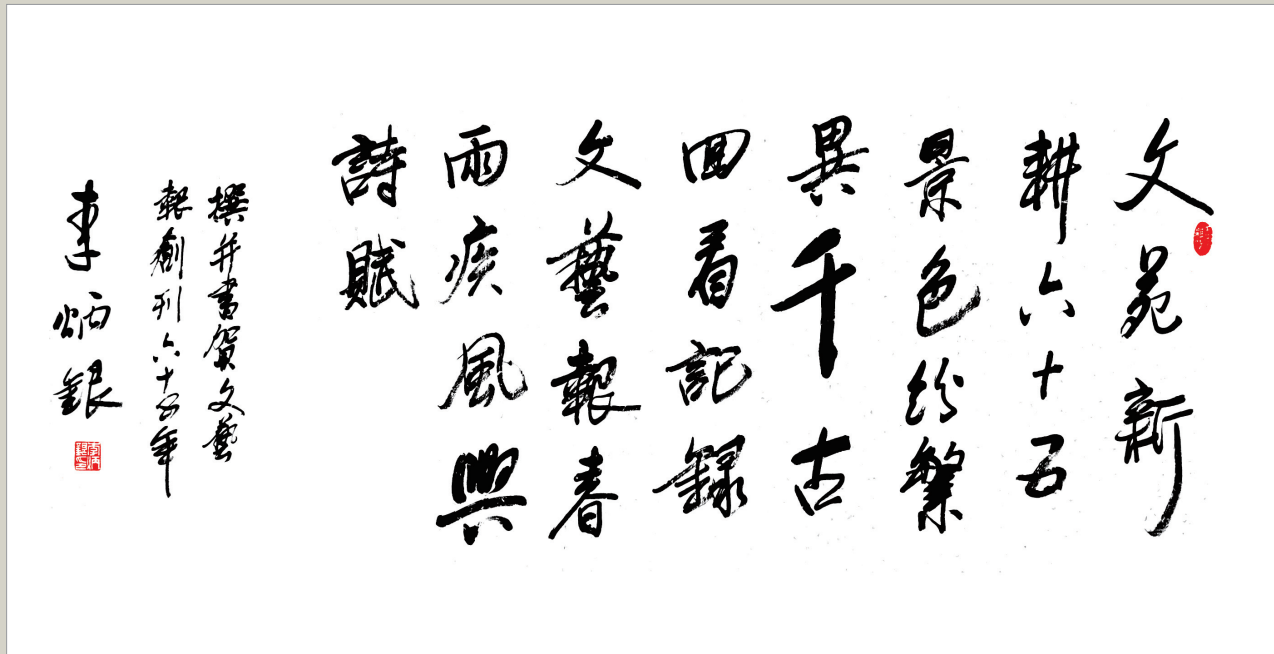 文苑新
耕六十五
景色纷繁
異千古
回看記録
文藝報春
雨疾風興
詩賦
撰并書賀文藝
報創刊六十五年
李炳銀